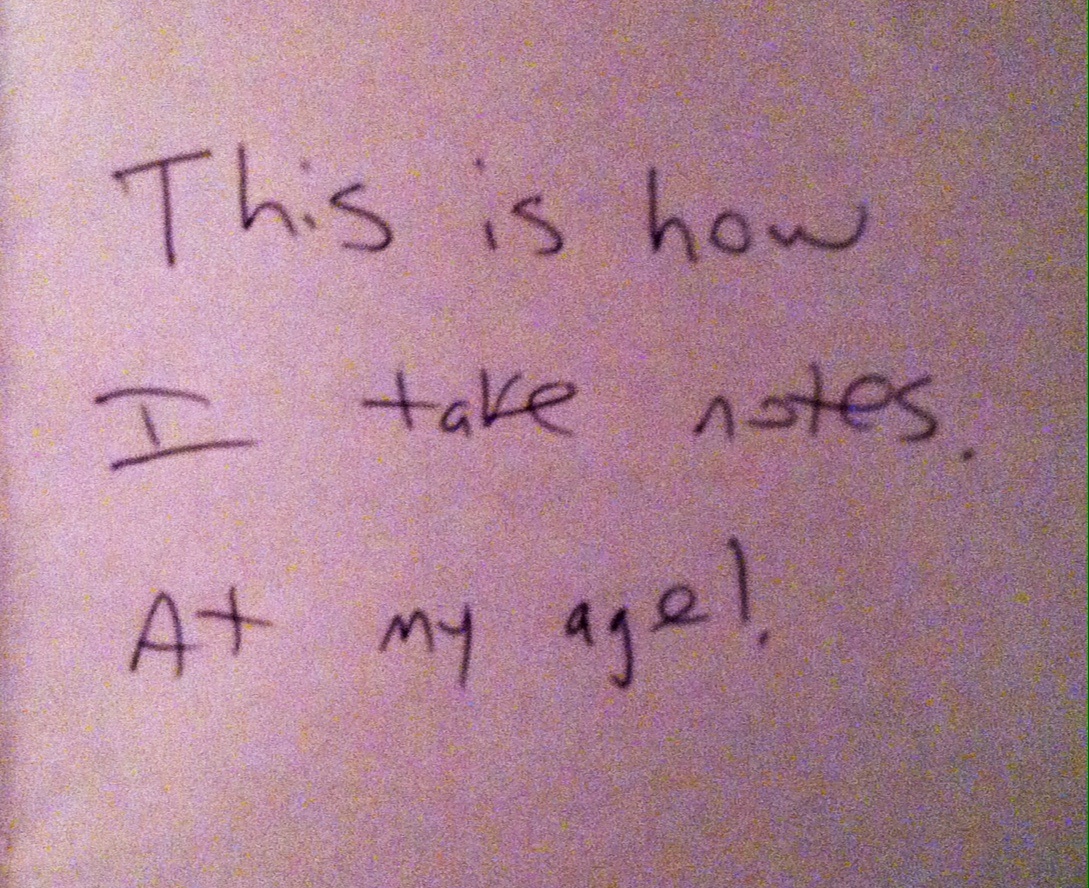 This is how
I take notes.
At my age!